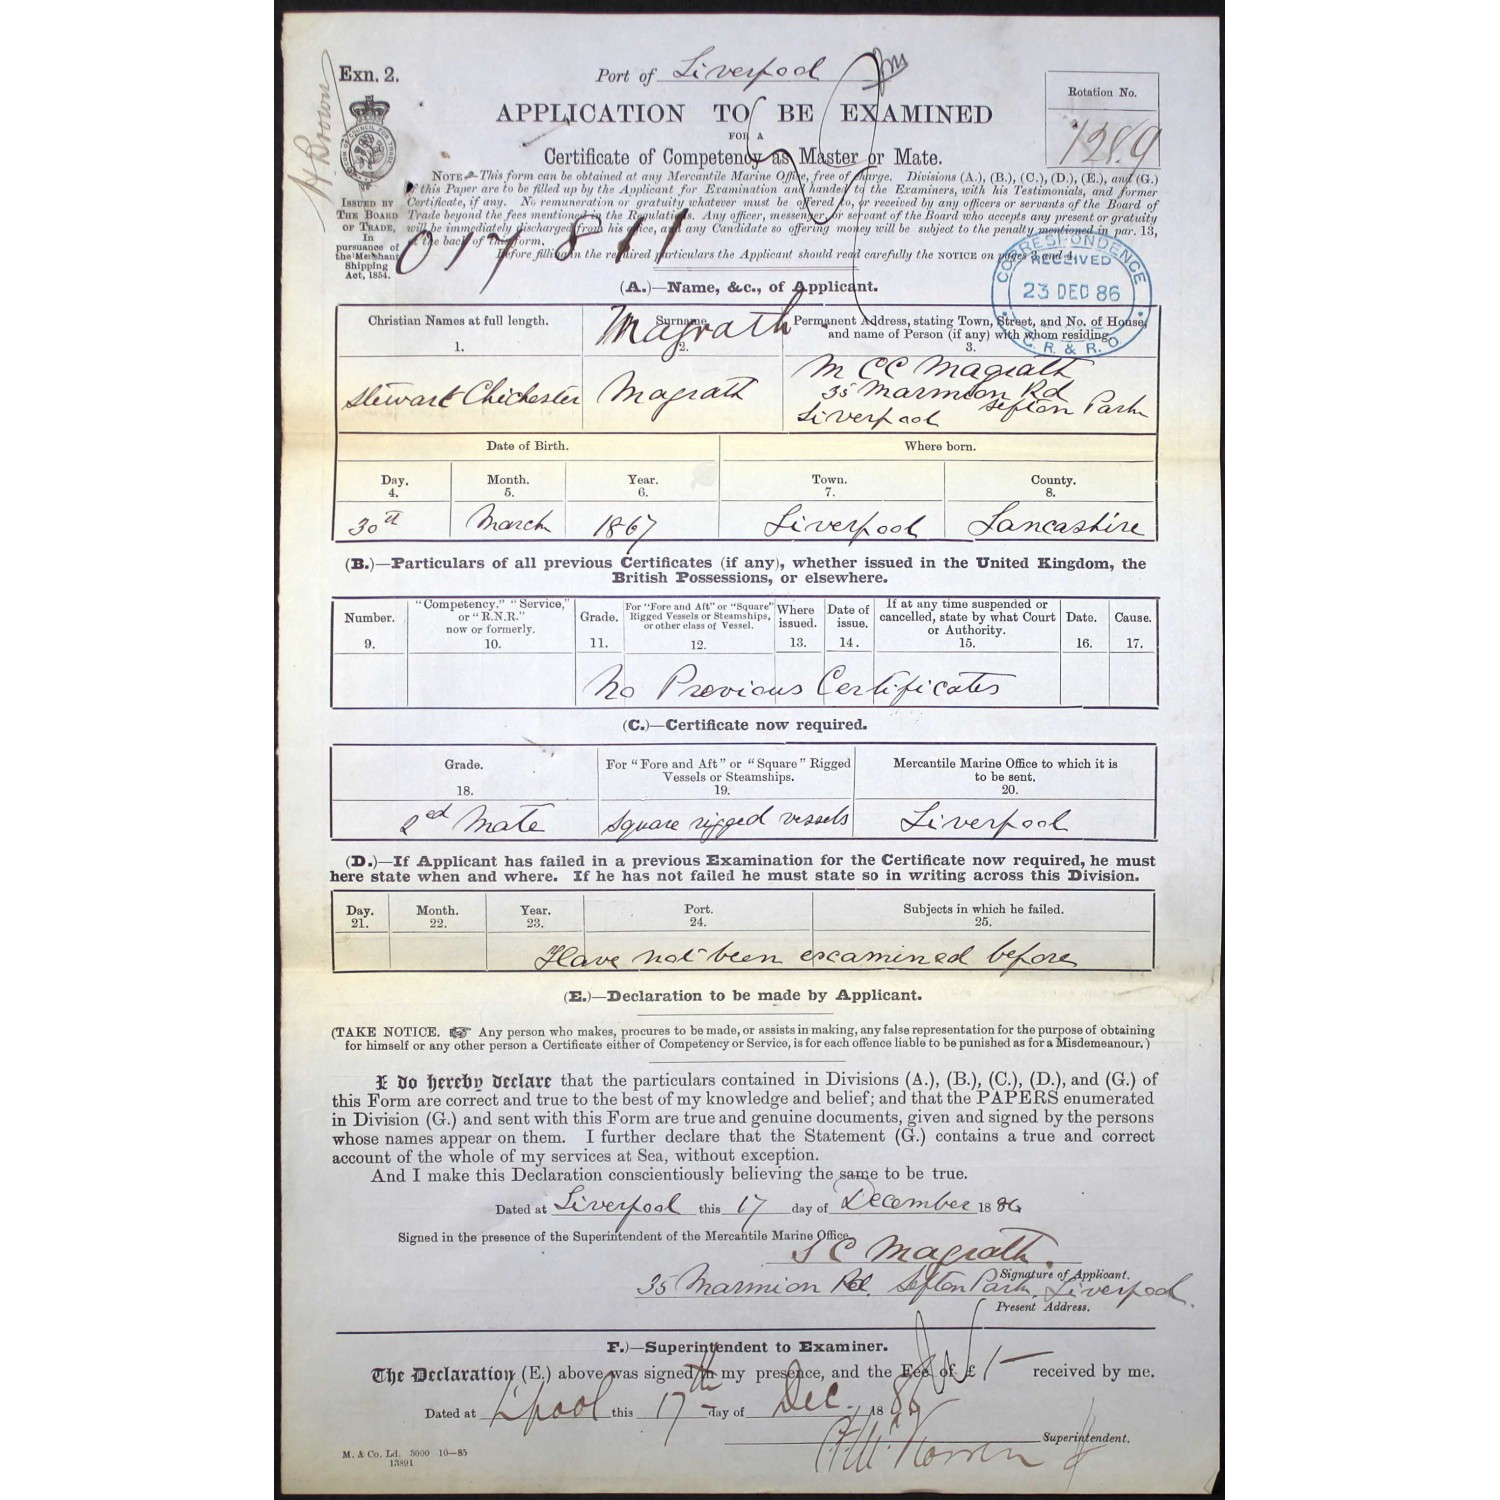 Exn. 2.
Port of Liverpool
Rotation No.
1289
APPLICATION TO BE EXAMINED
FOR A
Certificate of Competency as Master or Mate.
H. Brown
ISSUED BY
THE BOARD
OF TRADE,
In
pursuance of
the Merchant
Shipping
Act, 1854.
NOTE.—This form can be obtained at any Mercantile Marine Office, free of charge. Divisions (A.), (B.), (C.), (D.), (E.), and (G.)
of this Paper are to be filled up by the Applicant for Examination and handed to the Examiners, with his Testimonials, and former
Certificate, if any. No remuneration or gratuity whatever must be offered to, or received by any officers or servants of the Board of
Trade beyond the fees mentioned in the Regulations. Any officer, messenger, or servant of the Board who accepts any present or gratuity
will be immediately discharged from his office, and any Candidate so offering money will be subject to the penalty mentioned in par. 13,
at the back of this form.
Before filling in the required particulars the Applicant should read carefully the NOTICE on pages 3 and 4.
017811
CORRESPONDENCE
RECEIVED
23 DEC 86
C. R. & R. O.
(A.)—Name, &c., of Applicant.
Christian Names at full length.
1.
Surname.
2.
Magrath
Permanent Address, stating Town, Street, and No. of House,
and name of Person (if any) with whom residing.
3.
Stewart Chichester
Magrath
M CC Magrath
35 Marmion Rd
Sefton Park
Liverpool
Date of Birth.
Where born.
Day.
4.
Month.
5.
Year.
6.
Town.
7.
County.
8.
30th
March
1867
Liverpool
Lancashire
(B.)—Particulars of all previous Certificates (if any), whether issued in the United Kingdom, the
British Possessions, or elsewhere.
Number.
9.
"Competency," "Service,"
or "R.N.R."
now or formerly.
10.
Grade.
11.
For "Fore and Aft" or "Square"
Rigged Vessels or Steamships,
or other class of Vessel.
12.
Where
issued.
13.
Date of
issue.
14.
If at any time suspended or
cancelled, state by what Court
or Authority.
15.
Date.
16.
Cause.
17.
No Previous Certificates
(C.)—Certificate now required.
Grade.
18.
For "Fore and Aft" or "Square" Rigged
Vessels or Steamships.
19.
Mercantile Marine Office to which it is
to be sent.
20.
2ed Mate
Square rigged vessels
Liverpool
(D.)—If Applicant has failed in a previous Examination for the Certificate now required, he must
here state when and where. If he has not failed he must state so in writing across this Division.
Day.
21.
Month.
22.
Year.
23.
Port.
24.
Subjects in which he failed.
25.
Have not been examined before
(E.)—Declaration to be made by Applicant.
(TAKE NOTICE. ☞ Any person who makes, procures to be made, or assists in making, any false representation for the purpose of obtaining
for himself or any other person a Certificate either of Competency or Service, is for each offence liable to be punished as for a Misdemeanour.)
I do hereby declare that the particulars contained in Divisions (A.), (B.), (C.), (D.), and (G.) of
this Form are correct and true to the best of my knowledge and belief; and that the PAPERS enumerated
in Division (G.) and sent with this Form are true and genuine documents, given and signed by the persons
whose names appear on them. I further declare that the Statement (G.) contains a true and correct
account of the whole of my services at Sea, without exception.
And I make this Declaration conscientiously believing the same to be true.
Dated at Liverpool this 17 day of December 1886
Signed in the presence of the Superintendent of the Mercantile Marine Office,
S C Magrath.
Signature of Applicant.
35 Marmion Rd. Sefton Park, Liverpool.
Present Address.
F.)—Superintendent to Examiner.
The Declaration (E.) above was signed in my presence, and the Fee of £ 1/- received by me.
Dated at L'pool this 17th day of Dec. 1886
Superintendent.
M. & Co. Ld. 3000 10—85
13891